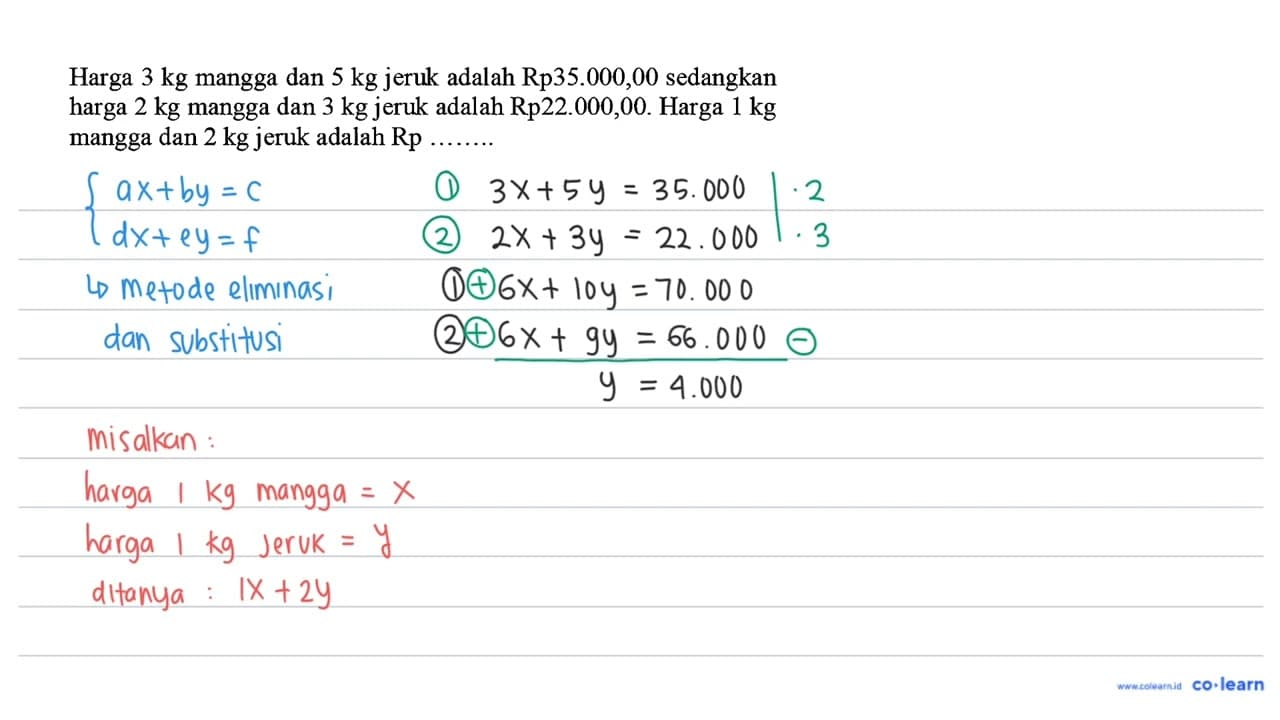 Harga 3 kg mangga dan 5 kg jeruk adalah Rp35.000,00 sedangkan
harga 2 kg mangga dan 3 kg jeruk adalah Rp22.000,00. Harga 1 kg
mangga dan 2 kg jeruk adalah Rp ........
{ ax + by = c
dx + ey = f
↳ metode eliminasi
dan substitusi
① 3x + 5y = 35.000 | · 2
② 2x + 3y = 22.000 | · 3
① ⊕ 6x + 10y = 70.000
② ⊕ 6x + 9y = 66.000 ⊖
y = 4.000
misalkan :
harga 1 kg mangga = x
harga 1 kg jeruk = y
ditanya : 1x + 2y
www.colearn.id co·learn